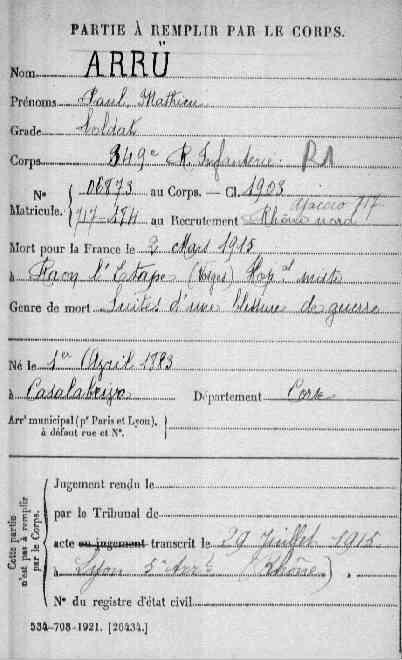 PARTIE À REMPLIR PAR LE CORPS.
Nom ARRÜ
Prénoms Paul Mathieu
Grade Soldat
Corps 349e R. Infanterie.
No 06873 au Corps. — Cl. 1903
Matricule. 717-184 au Recrutement Rhône nord Ajaccio 717
Mort pour la France le 2 Mars 1915
à Raon l'Etape (Vosges) Hop.al mixte
Genre de mort Suites d'une blessure de guerre
Né le 1er Avril 1883
à Casalabriva Département Corse
Arrt municipal (pr Paris et Lyon),
à défaut rue et No.
Cette partie n'est pas à remplir par le Corps.
Jugement rendu le
par le Tribunal de
acte ou jugement transcrit le 29 Juillet 1915
à Lyon 5e Arrt (Rhône)
No du registre d'état civil
534-708-1921. [26434.]